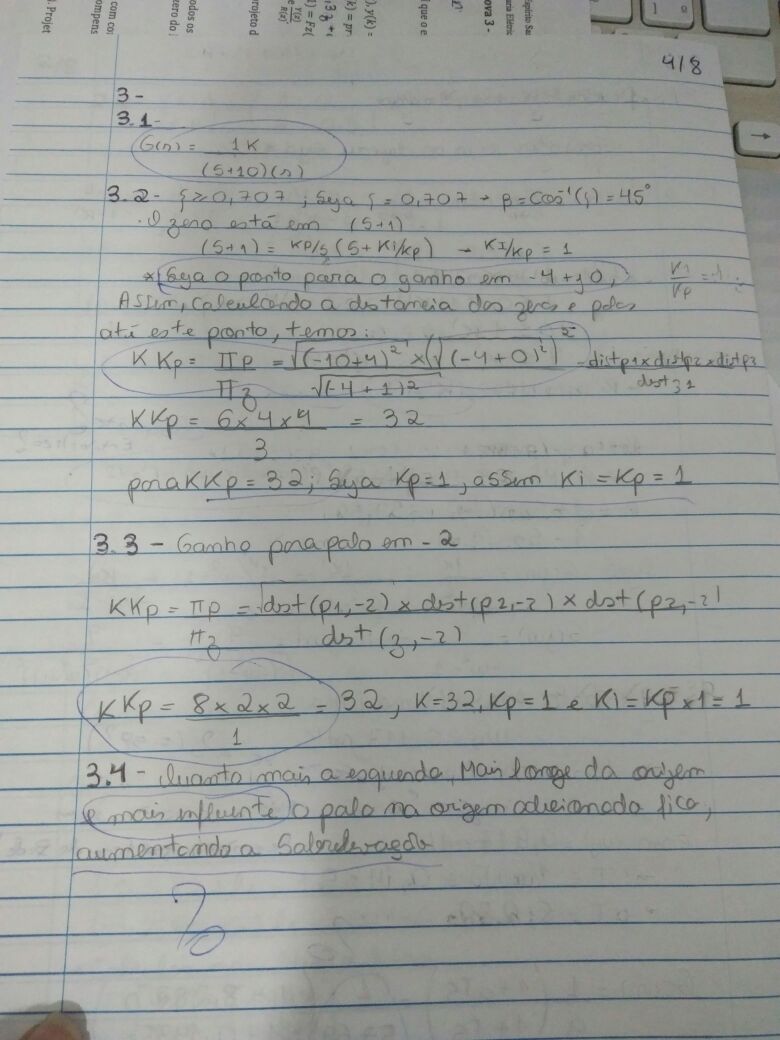 ova 3 -
4/8
3-
3.1-
G(s) = 1K
(S+10)(s)
3.2- ξ ≥ 0,707 ; Seja ξ = 0,707 → β = Cos⁻¹(ξ) = 45°
. O zero está em (S+1)
(S+1) = KP/s (S + Ki/kp) → KI/KP = 1
* Seja o ponto para o ganho em -4+j0,
KI/KP = 1
Assim, calculando a distancia dos zeros e polos
até este ponto, temos:
K Kp = πp/πz = √(-10+4)² × (√(-4+0)²)² / √(-4+1)² = distp1 x distp2 x distp3 / distz1
K Kp = 6 x 4 x 4 / 3 = 32
para KKp = 32; Seja Kp = 1, assim Ki = Kp = 1
3.3 - Ganho para polo em -2
KKp = πp/πz = dist(p1,-2) x dist(p2,-2) x dist(p2,-2) / dist(z,-2)
KKp = 8 x 2 x 2 / 1 = 32, K=32, Kp=1 e Ki = Kp x 1 = 1
3.4 - Quanto mais a esquerda, Mais longe da origem
e mais influente o polo na origem adicionado fica,
aumentando a Sobrelevação